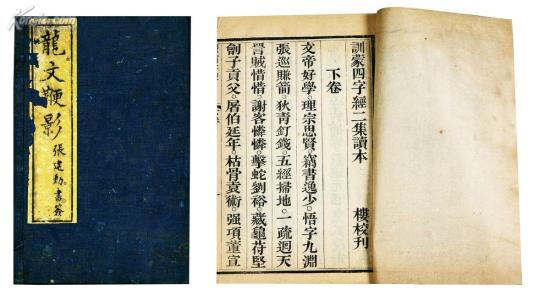 龍文鞭影
張建勳書簽
訓蒙四字經二集讀本　樓校刊
下卷
文帝好學。理宗思賢。竊書逸少。悟字九淵
張巡賺箭。狄青釘錢。五經掃地。一疏迴天
詈賊惜惜。謝客憐憐。擊蛇劉裕。藏龜苻堅
劊子貢父。屠伯延年。枯骨袁術。强項董宣